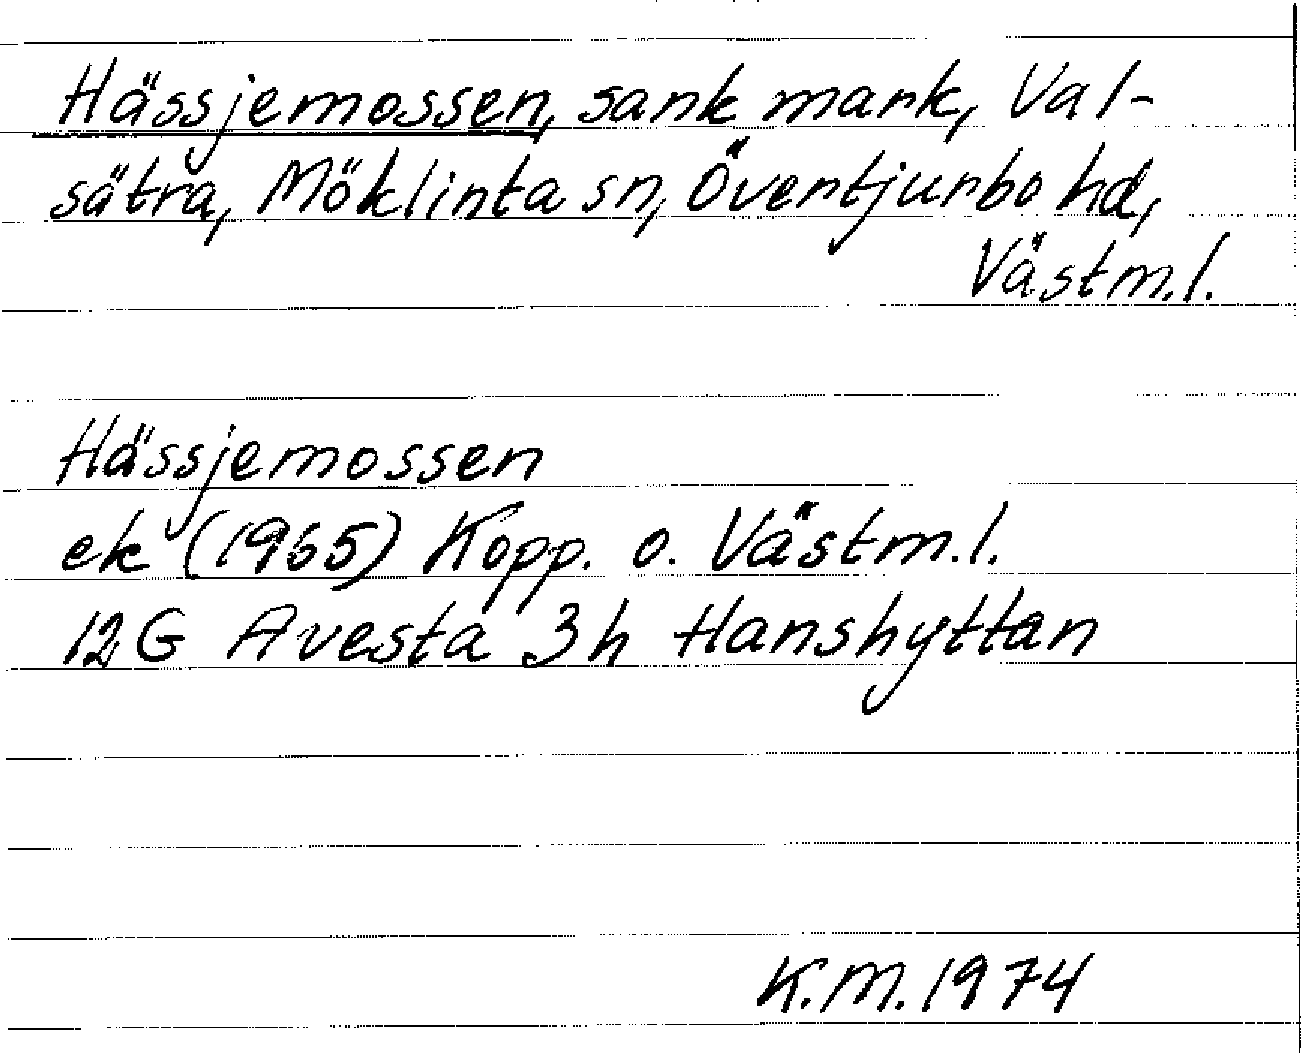 Hässjemossen, sank mark, Val-
sätra, Möklinta sn, Övertjurbo hd,
Västm.l.
Hässjemossen
ek (1965) Kopp. o. Västm.l.
12G Avesta 3h Hanshyttan
K.M. 1974